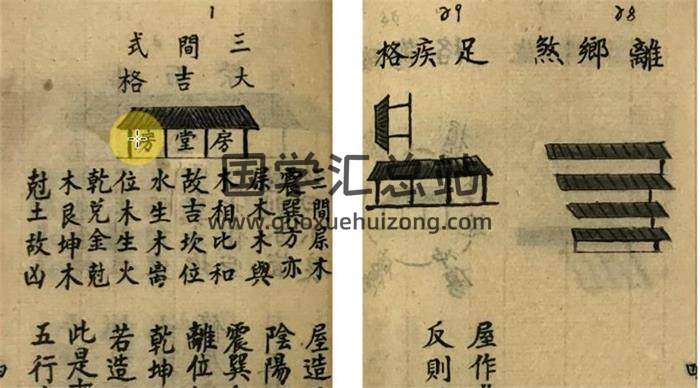 1
三間式
大吉格
房堂房
三間屋木
震巽方亦
屬木木與
木相比和
故吉坎位
水生木离
位木生火
乾兌金尅
木艮坤木
尅土故凶
屋造
陰陽
震巽
離位
乾坤
若造
此是
五行
28
離鄉煞
29
足疾格
屋作
反則
国学汇总站
www.guoxuehuizong.com